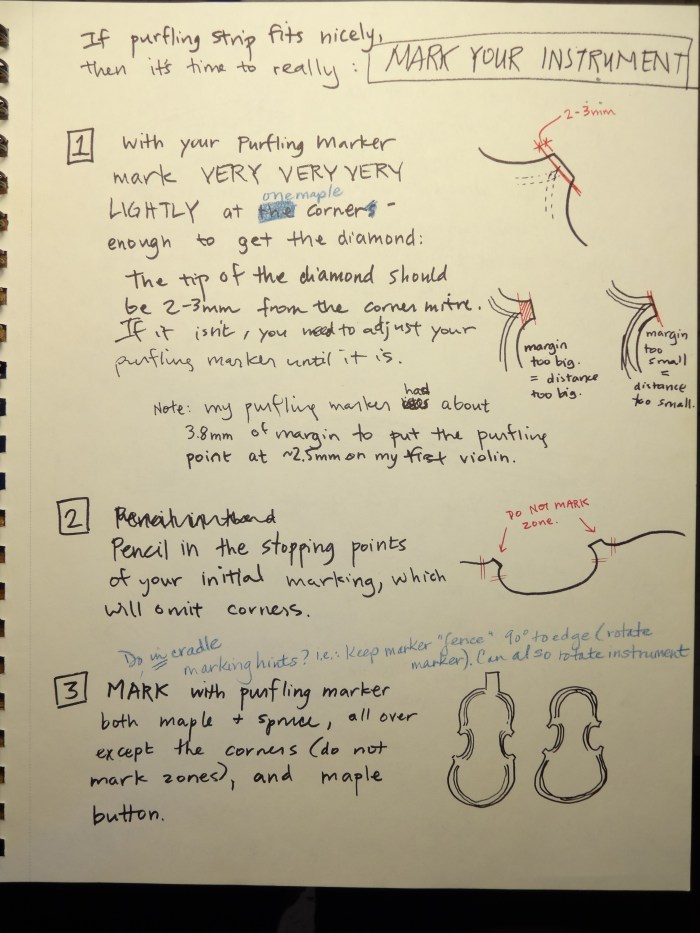 If purfling strip fits nicely,
then it's time to really : MARK YOUR INSTRUMENT
1 With your Purfling Marker
mark VERY VERY VERY
one maple
LIGHTLY at the corners -
enough to get the diamond:
2-3mm
The tip of the diamond should
be 2-3mm from the corner mitre.
If it isn't, you need to adjust your
purfling marker until it is.
margin
too big.
= distance
too big.
margin
too
small
=
distance
too small.
had
Note: my purfling marker about
3.8mm of margin to put the purfling
point at ~2.5mm on my first violin.
2
Pencil in the stopping points
of your initial marking, which
will omit corners.
DO NOT MARK
ZONE.
Do in cradle
marking hints? i.e.: Keep marker "fence" 90° to edge (rotate
marker). Can also rotate instrument
3 MARK with purfling marker
both maple + spruce, all over
except the corners (do not
mark zones), and maple
button.